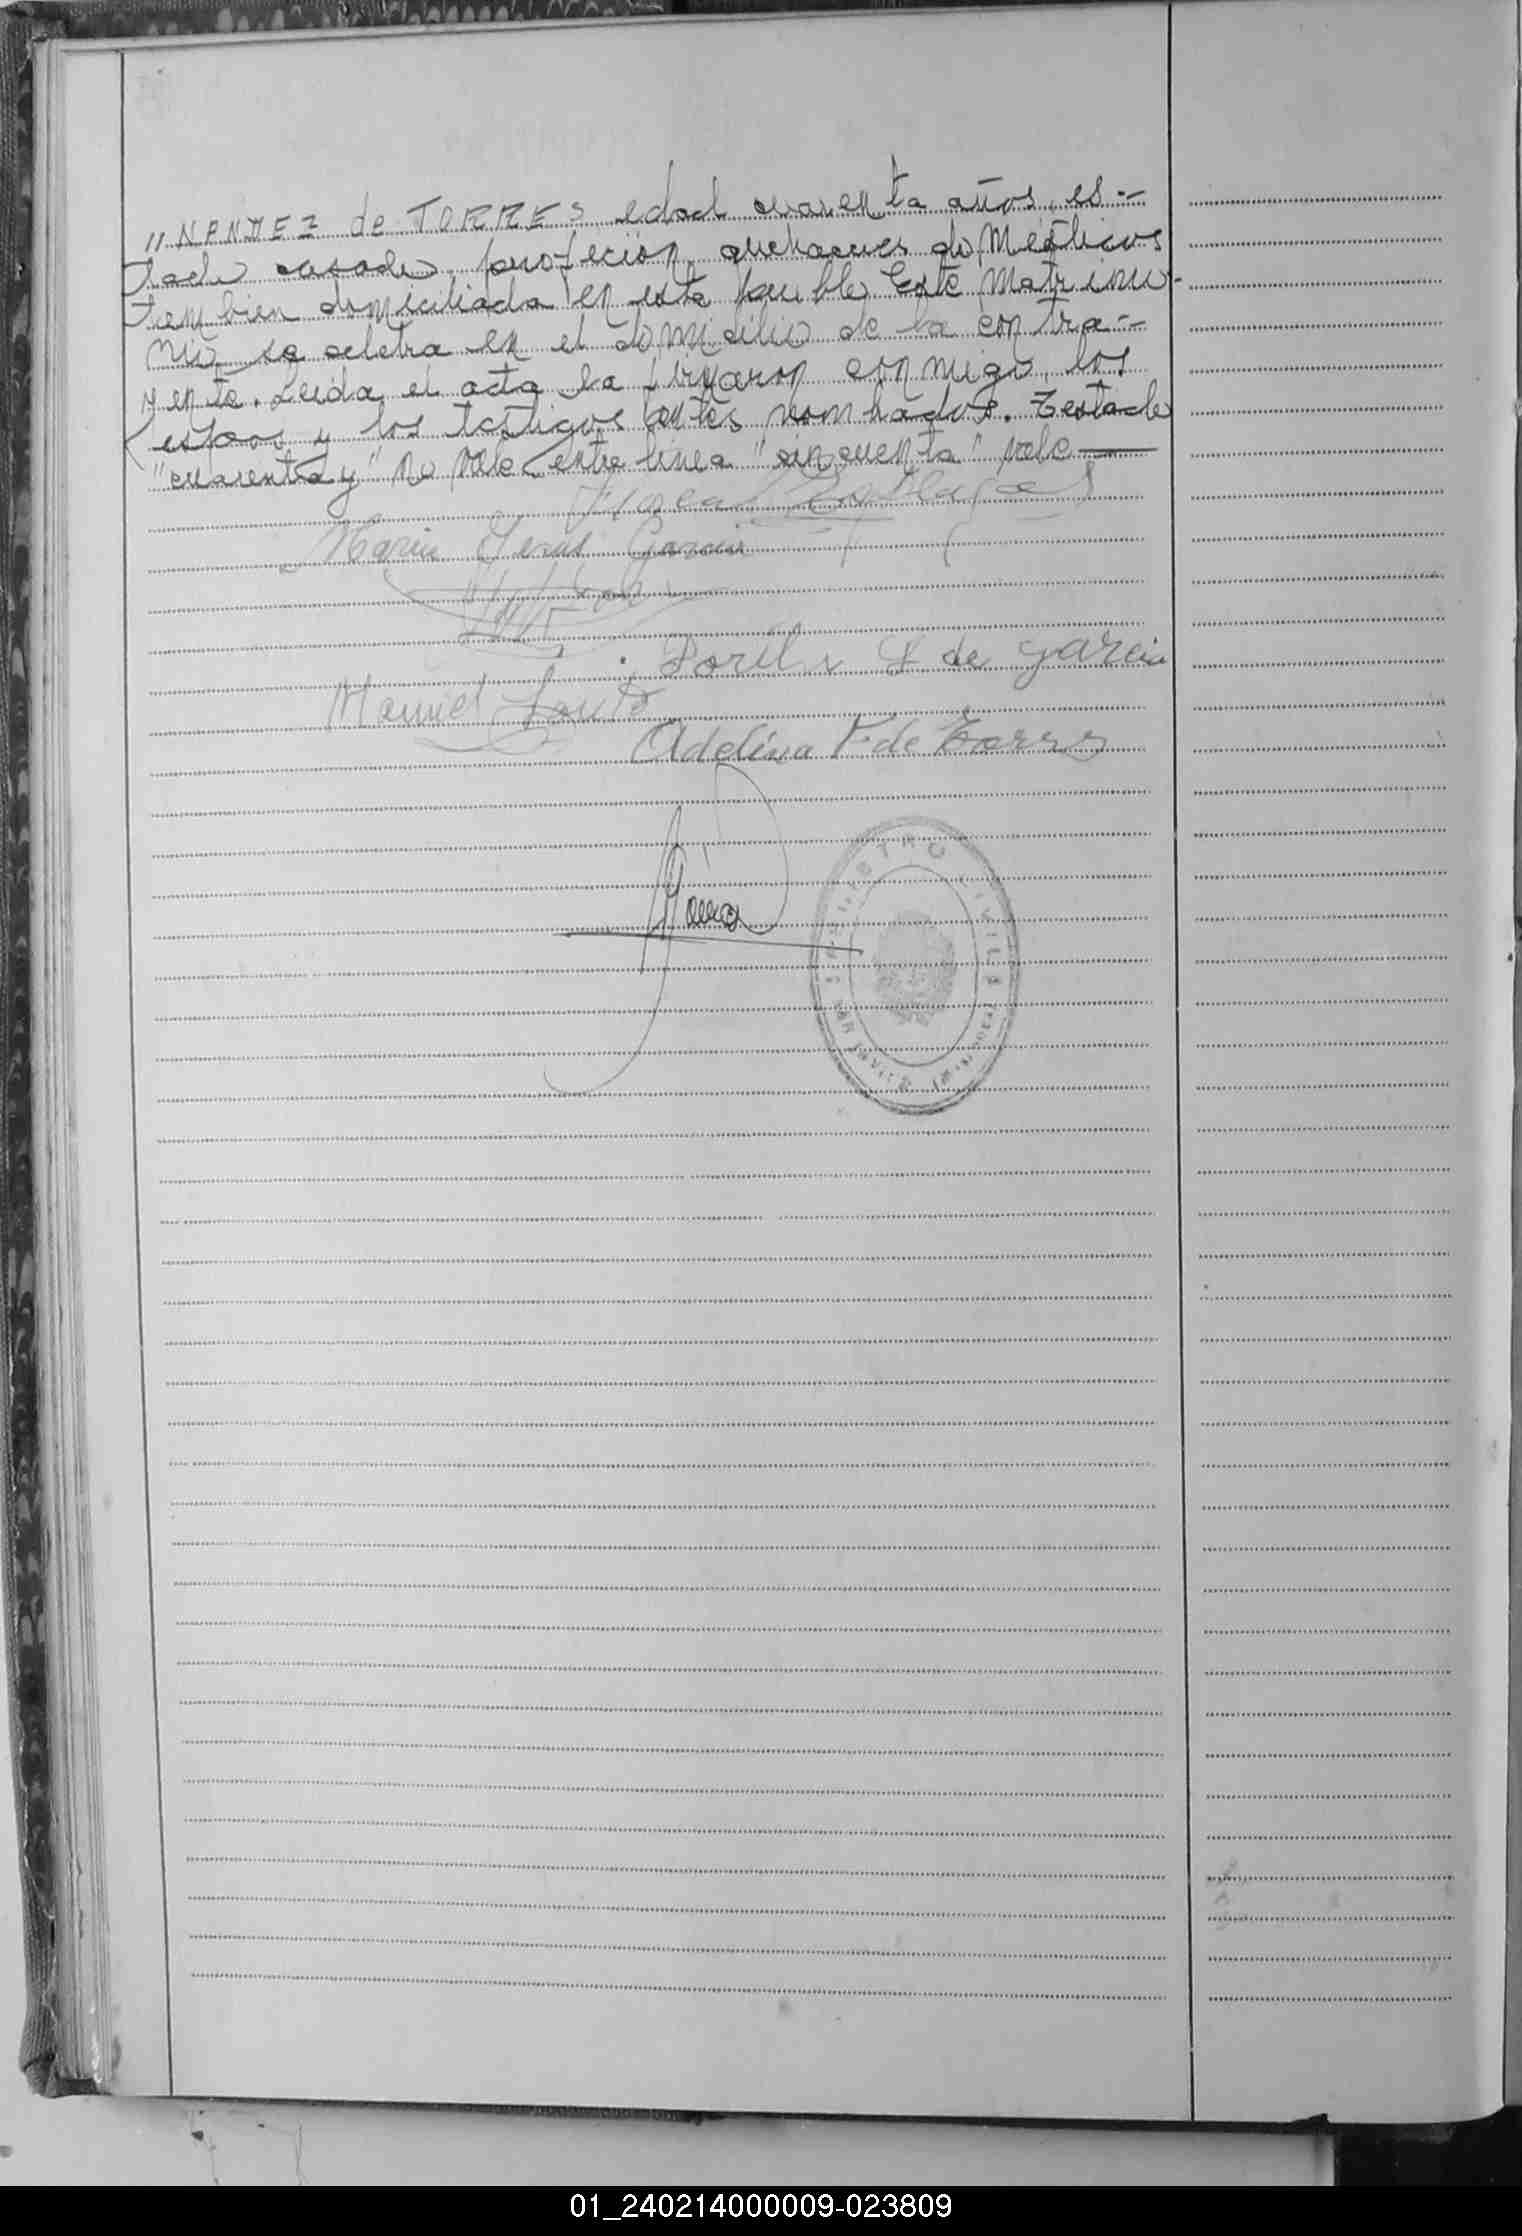 "NANDEZ de TORRES edad cuarenta años, es-
tado casada, profecion quehaceres domésticos
tambien domiciliada en este pueblo Este matrimo-
nio se celebra en el domicilio de la contra-
yente. Leida el acta la firmaron conmigo, los
esposos y los testigos antes nombrados. Testado
"cuarenta y" no vale entre linea "cincuenta" vale
Maria Jesus Garcia
L de Garcia
Manuel
Adelina F. de Torres
REGISTRO CIVIL
SAN JAVIER
01_240214000009-023809